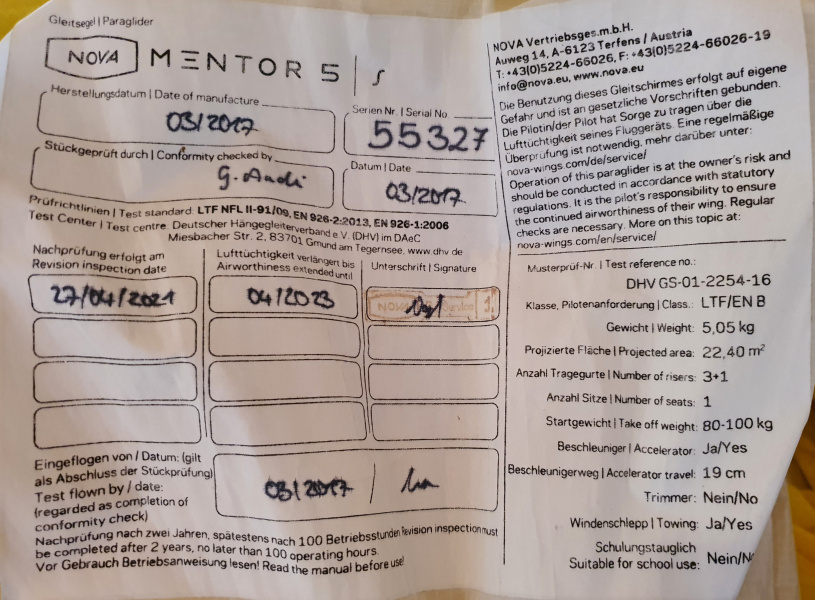 Gleitsegel | Paraglider
NOVA MENTOR 5 | S
Herstellungsdatum | Date of manufacture
03/2017
Serien Nr. | Serial No
55327
Stückgeprüft durch | Conformity checked by
G.
Datum | Date
03/2017
Prüfrichtlinien | Test standard: LTF NFL II-91/09, EN 926-2:2013, EN 926-1:2006
Test Center | Test centre: Deutscher Hängegleiterverband e.V. (DHV) im DAeC
Miesbacher Str. 2, 83701 Gmund am Tegernsee, www.dhv.de
Nachprüfung erfolgt am
Revision inspection date
Lufttüchtigkeit verlängert bis
Airworthiness extended until
Unterschrift | Signature
27/04/2021
04/2023
NOVA
Eingeflogen von / Datum: (gilt
als Abschluss der Stückprüfung)
Test flown by / date:
(regarded as completion of
conformity check)
03/2017 /
Nachprüfung nach zwei Jahren, spätestens nach 100 Betriebsstunden Revision inspection must
be completed after 2 years, no later than 100 operating hours.
Vor Gebrauch Betriebsanweisung lesen! Read the manual before use!
NOVA Vertriebsges.m.b.H.
Auweg 14, A-6123 Terfens / Austria
T: +43(0)5224-66026, F: +43(0)5224-66026-19
info@nova.eu, www.nova.eu
Die Benutzung dieses Gleitschirmes erfolgt auf eigene
Gefahr und ist an gesetzliche Vorschriften gebunden.
Die Pilotin/der Pilot hat Sorge zu tragen über die
Lufttüchtigkeit seines Fluggeräts. Eine regelmäßige
Überprüfung ist notwendig, mehr darüber unter:
nova-wings.com/de/service/
Operation of this paraglider is at the owner's risk and
should be conducted in accordance with statutory
regulations. It is the pilot's responsibility to ensure
the continued airworthiness of their wing. Regular
checks are necessary. More on this topic at:
nova-wings.com/en/service/
Musterprüf-Nr. | Test reference no.:
DHV GS-01-2254-16
Klasse, Pilotenanforderung | Class.: LTF/EN B
Gewicht | Weight: 5,05 kg
Projizierte Fläche | Projected area: 22,40 m²
Anzahl Tragegurte | Number of risers: 3+1
Anzahl Sitze | Number of seats: 1
Startgewicht | Take off weight: 80-100 kg
Beschleuniger | Accelerator: Ja/Yes
Beschleunigerweg | Accelerator travel: 19 cm
Trimmer: Nein/No
Windenschlepp | Towing: Ja/Yes
Schulungstauglich
Suitable for school use: Nein/No